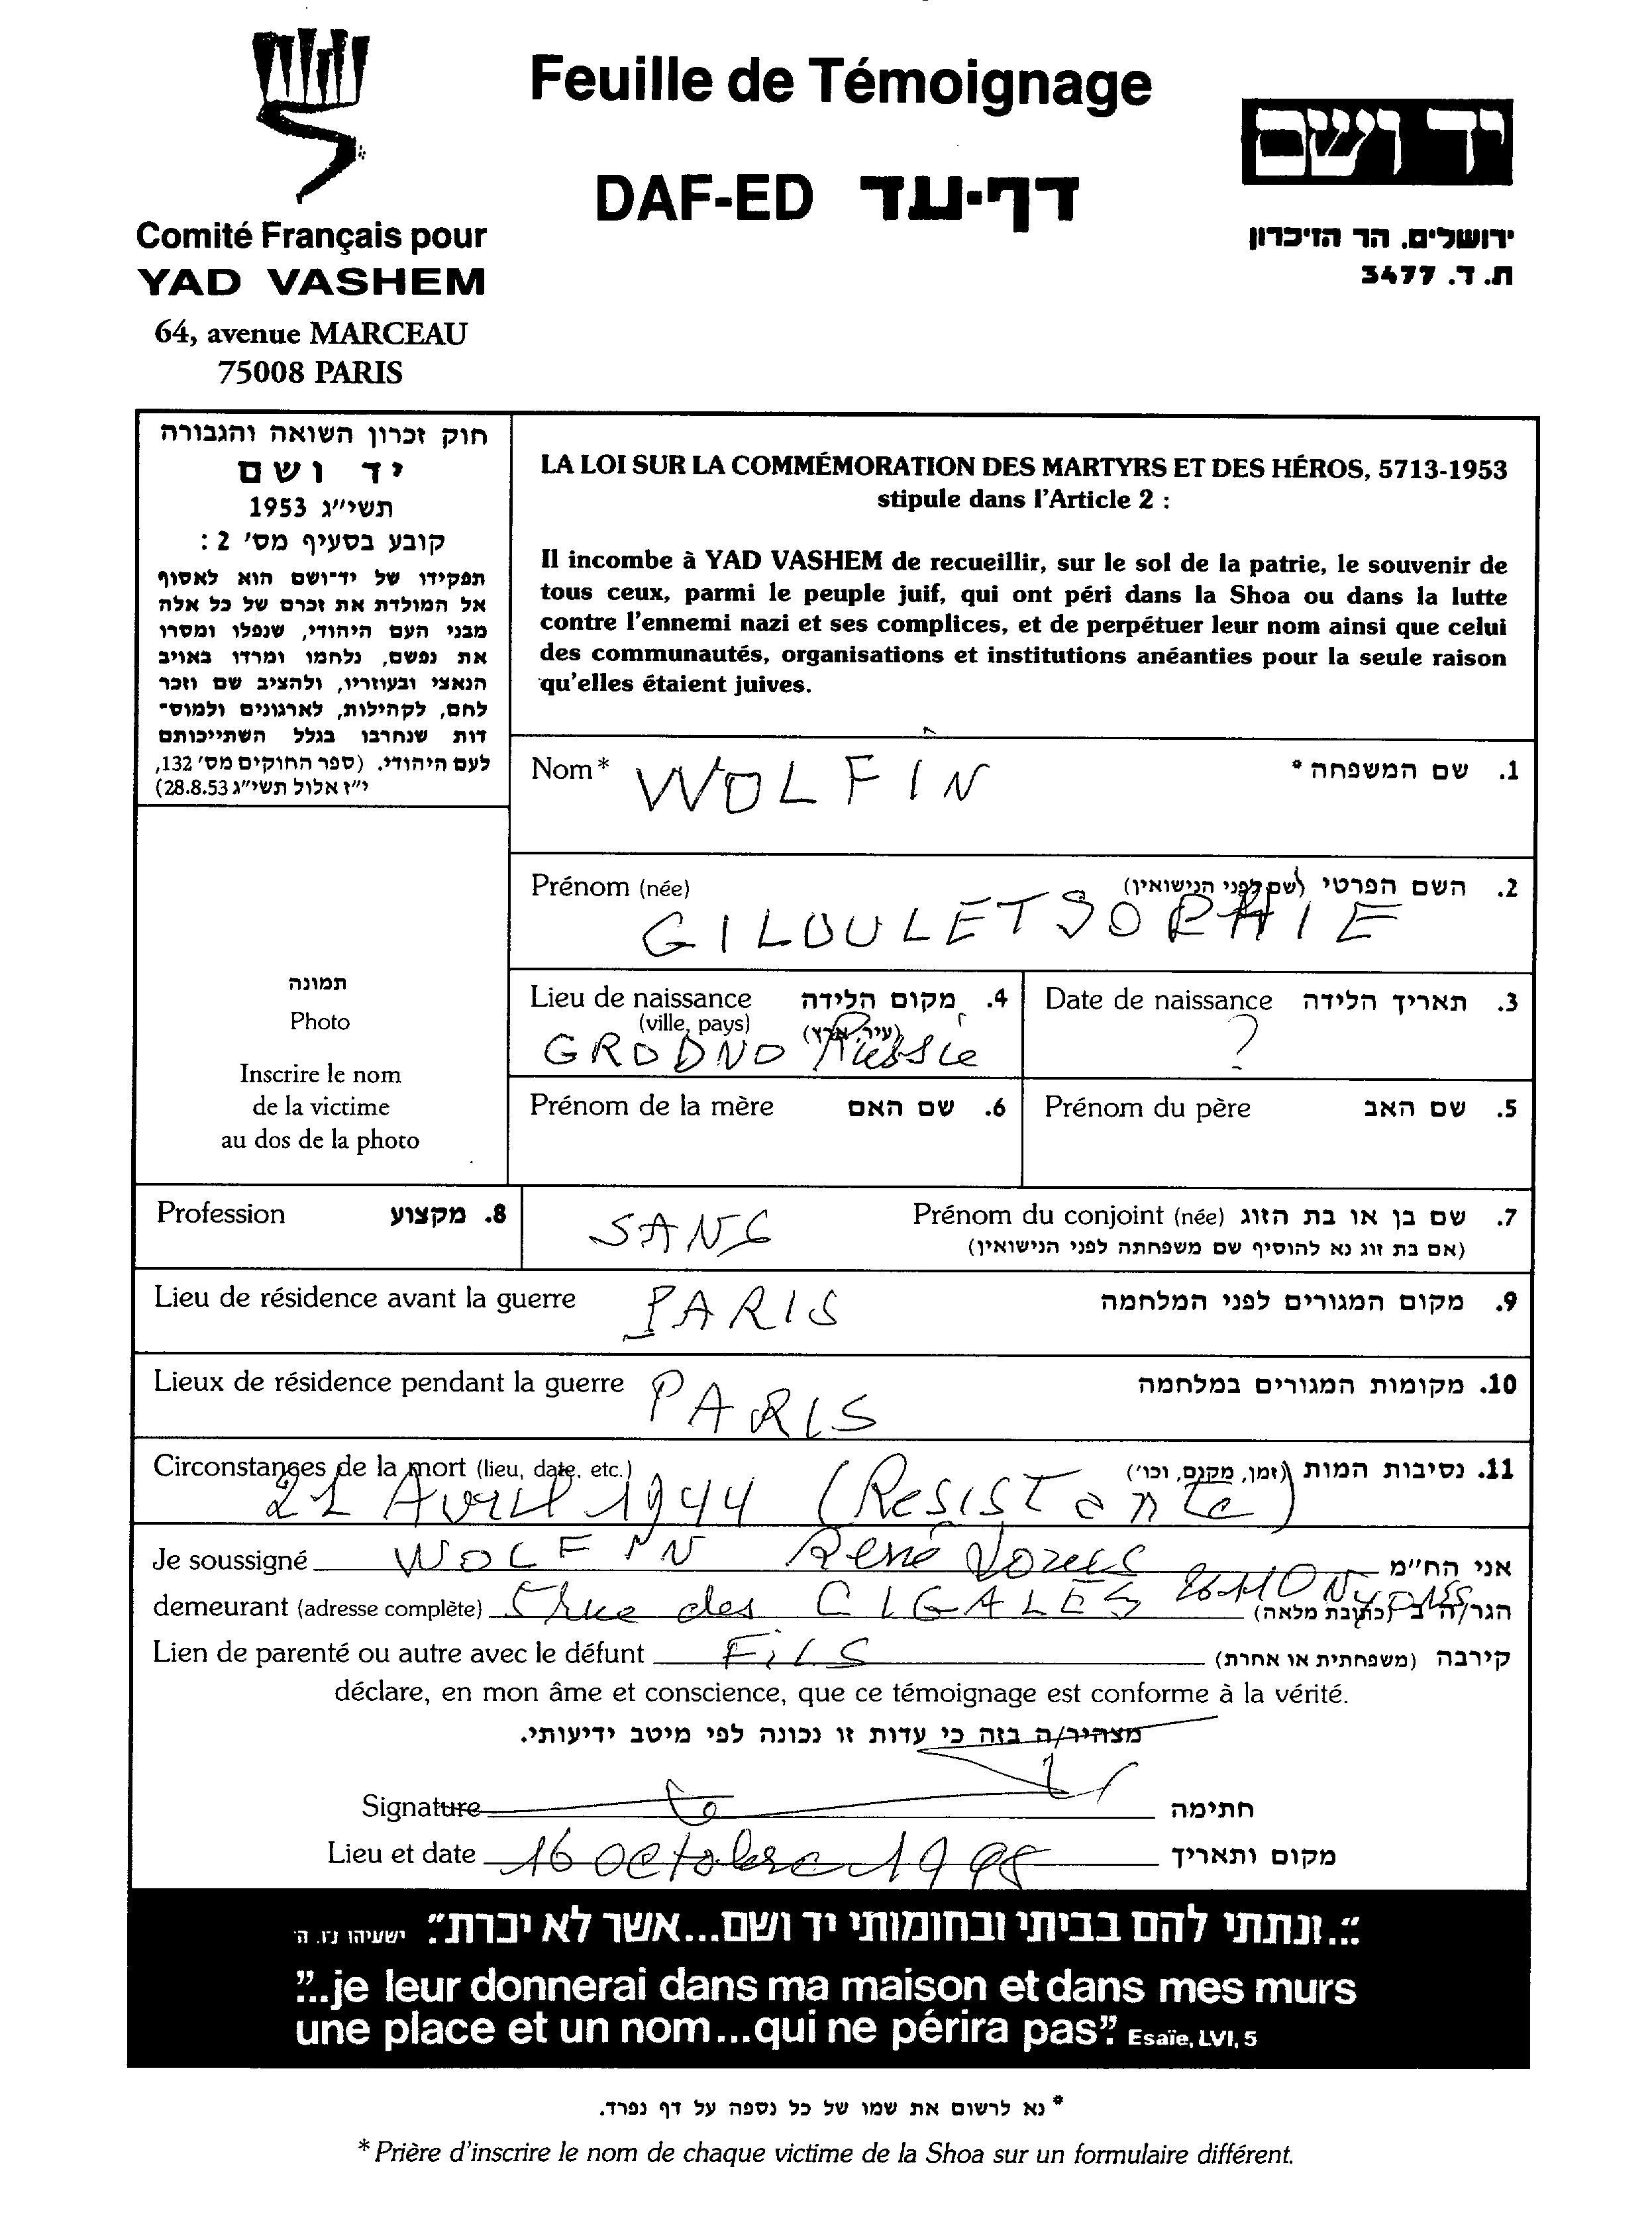 Feuille de Témoignage
DAF-ED דף-עד
Comité Français pour
YAD VASHEM
64, avenue MARCEAU
75008 PARIS
יד ושם
ירושלים, הר הזיכרון
ת. ד. 3477
חוק זכרון השואה והגבורה
יד ושם
תשי״ג 1953
קובע בסעיף מס׳ 2 :
תפקידו של יד־ושם הוא לאסוף
אל המולדת את זכרם של כל אלה
מבני העם היהודי, שנפלו ומסרו
את נפשם, נלחמו ומרדו באויב
הנאצי ובעוזריו, ולהציב שם וזכר
לחם, לקהילות, לארגונים ולמוס־
דות שנחרבו בגלל השתייכותם
לעם היהודי. (ספר החוקים מס׳ 132,
י״ז אלול תשי״ג 28.8.53)
LA LOI SUR LA COMMÉMORATION DES MARTYRS ET DES HÉROS, 5713-1953
stipule dans l'Article 2 :
Il incombe à YAD VASHEM de recueillir, sur le sol de la patrie, le souvenir de
tous ceux, parmi le peuple juif, qui ont péri dans la Shoa ou dans la lutte
contre l'ennemi nazi et ses complices, et de perpétuer leur nom ainsi que celui
des communautés, organisations et institutions anéanties pour la seule raison
qu'elles étaient juives.
Nom* WOLFIN 1. שם המשפחה *
Prénom (née) 2. השם הפרטי (שם לפני הנישואין)
GILOULET SOPHIE
Lieu de naissance 4. מקום הלידה
(ville, pays) (עיר, ארץ)
GRODNO Russie
Date de naissance 3. תאריך הלידה
?
Prénom de la mère 6. שם האם
Prénom du père 5. שם האב
תמונה
Photo
Inscrire le nom
de la victime
au dos de la photo
Profession 8. מקצוע
SANS
Prénom du conjoint (née) 7. שם בן או בת הזוג
(אם בת זוג נא להוסיף שם משפחתה לפני הנישואין)
Lieu de résidence avant la guerre PARIS 9. מקום המגורים לפני המלחמה
Lieux de résidence pendant la guerre PARIS 10. מקומות המגורים במלחמה
Circonstances de la mort (lieu, date, etc.) 11. נסיבות המות (זמן, מקום, וכו׳)
21 Avril 1944 (Resistante)
Je soussigné WOLFIN René אני הח״מ
demeurant (adresse complète) rue des CIGALES 26110 Nyons הגר/ה ב (כתובת מלאה)
Lien de parenté ou autre avec le défunt FiLS קירבה (משפחתית או אחרת)
déclare, en mon âme et conscience, que ce témoignage est conforme à la vérité.
מצהיר/ה בזה כי עדות זו נכונה לפי מיטב ידיעותי.
Signature חתימה
Lieu et date 16 octobre 1998 מקום ותאריך
״...ונתתי להם בביתי ובחומותי יד ושם...אשר לא יכרת״. ישעיהו נ״ו. ה׳
"...je leur donnerai dans ma maison et dans mes murs
une place et un nom...qui ne périra pas". Esaïe, LVI, 5
* נא לרשום את שמו של כל נספה על דף נפרד.
* Prière d'inscrire le nom de chaque victime de la Shoa sur un formulaire différent.